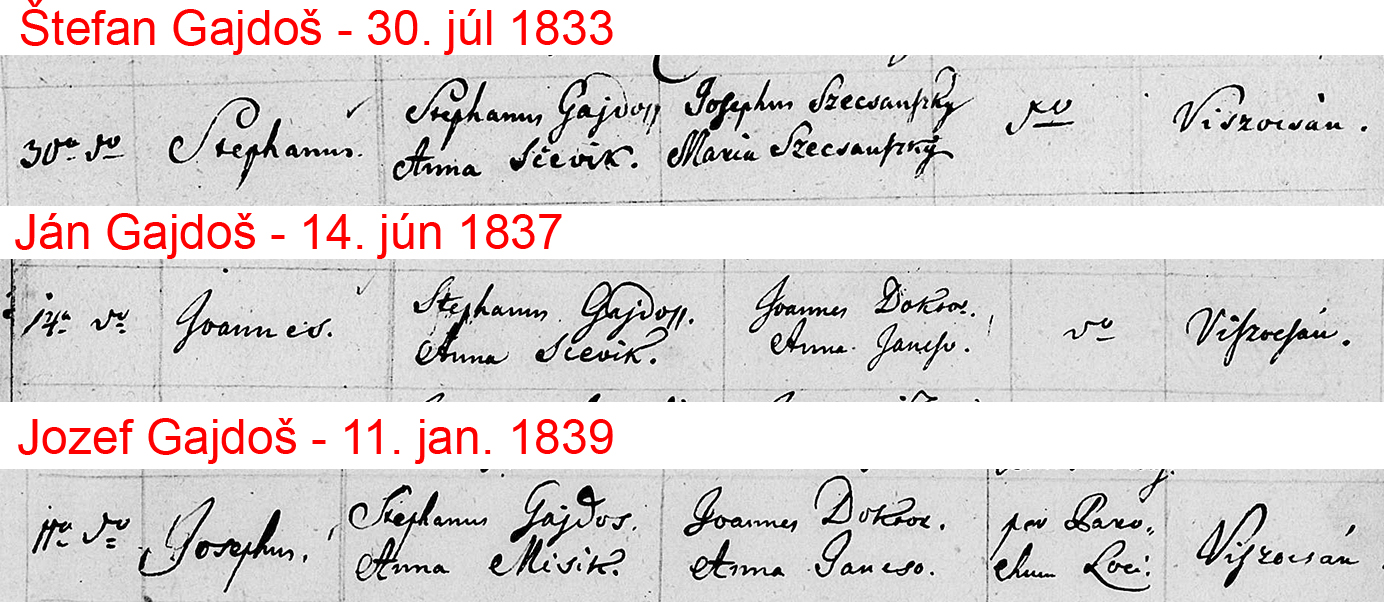 Štefan Gajdoš - 30. júl 1833
30a do Stephanus. Stephanus Gajdoss Josephus Szecsanszky do Viszocsán.
Anna Scevik. Maria Szecsanszky
Ján Gajdoš - 14. jún 1837
14a do Joannes. Stephanus Gajdoss. Joannes Doktor. do Viszocsán.
Anna Scevik. Anna Jancso.
Jozef Gajdoš - 11. jan. 1839
11a do Josephus. Stephanus Gajdos. Joannes Doktor. per Paro„ Viszocsán
Anna Misik. Anna Jancso. chum Loci.